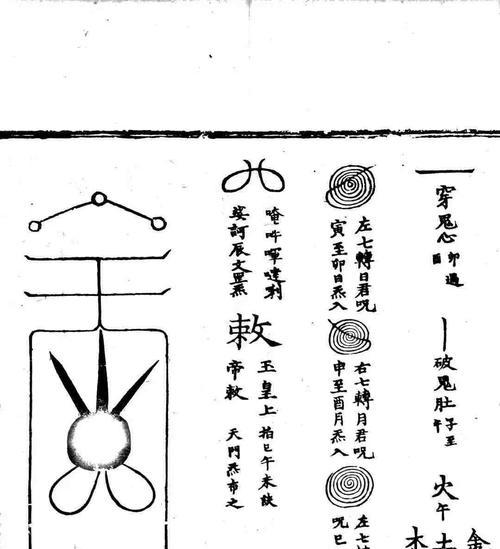 穿鬼心
卯過
酉
破鬼肚
子至
午
火午
金
土
木
左七轉日君咒
寅至卯日炁入
右七轉月君咒
申至酉月炁入
左七
咒巳
唵吽
娑訶辰文罡炁
敕
玉皇上
帝敕
掐巳午未訣
天門炁布之